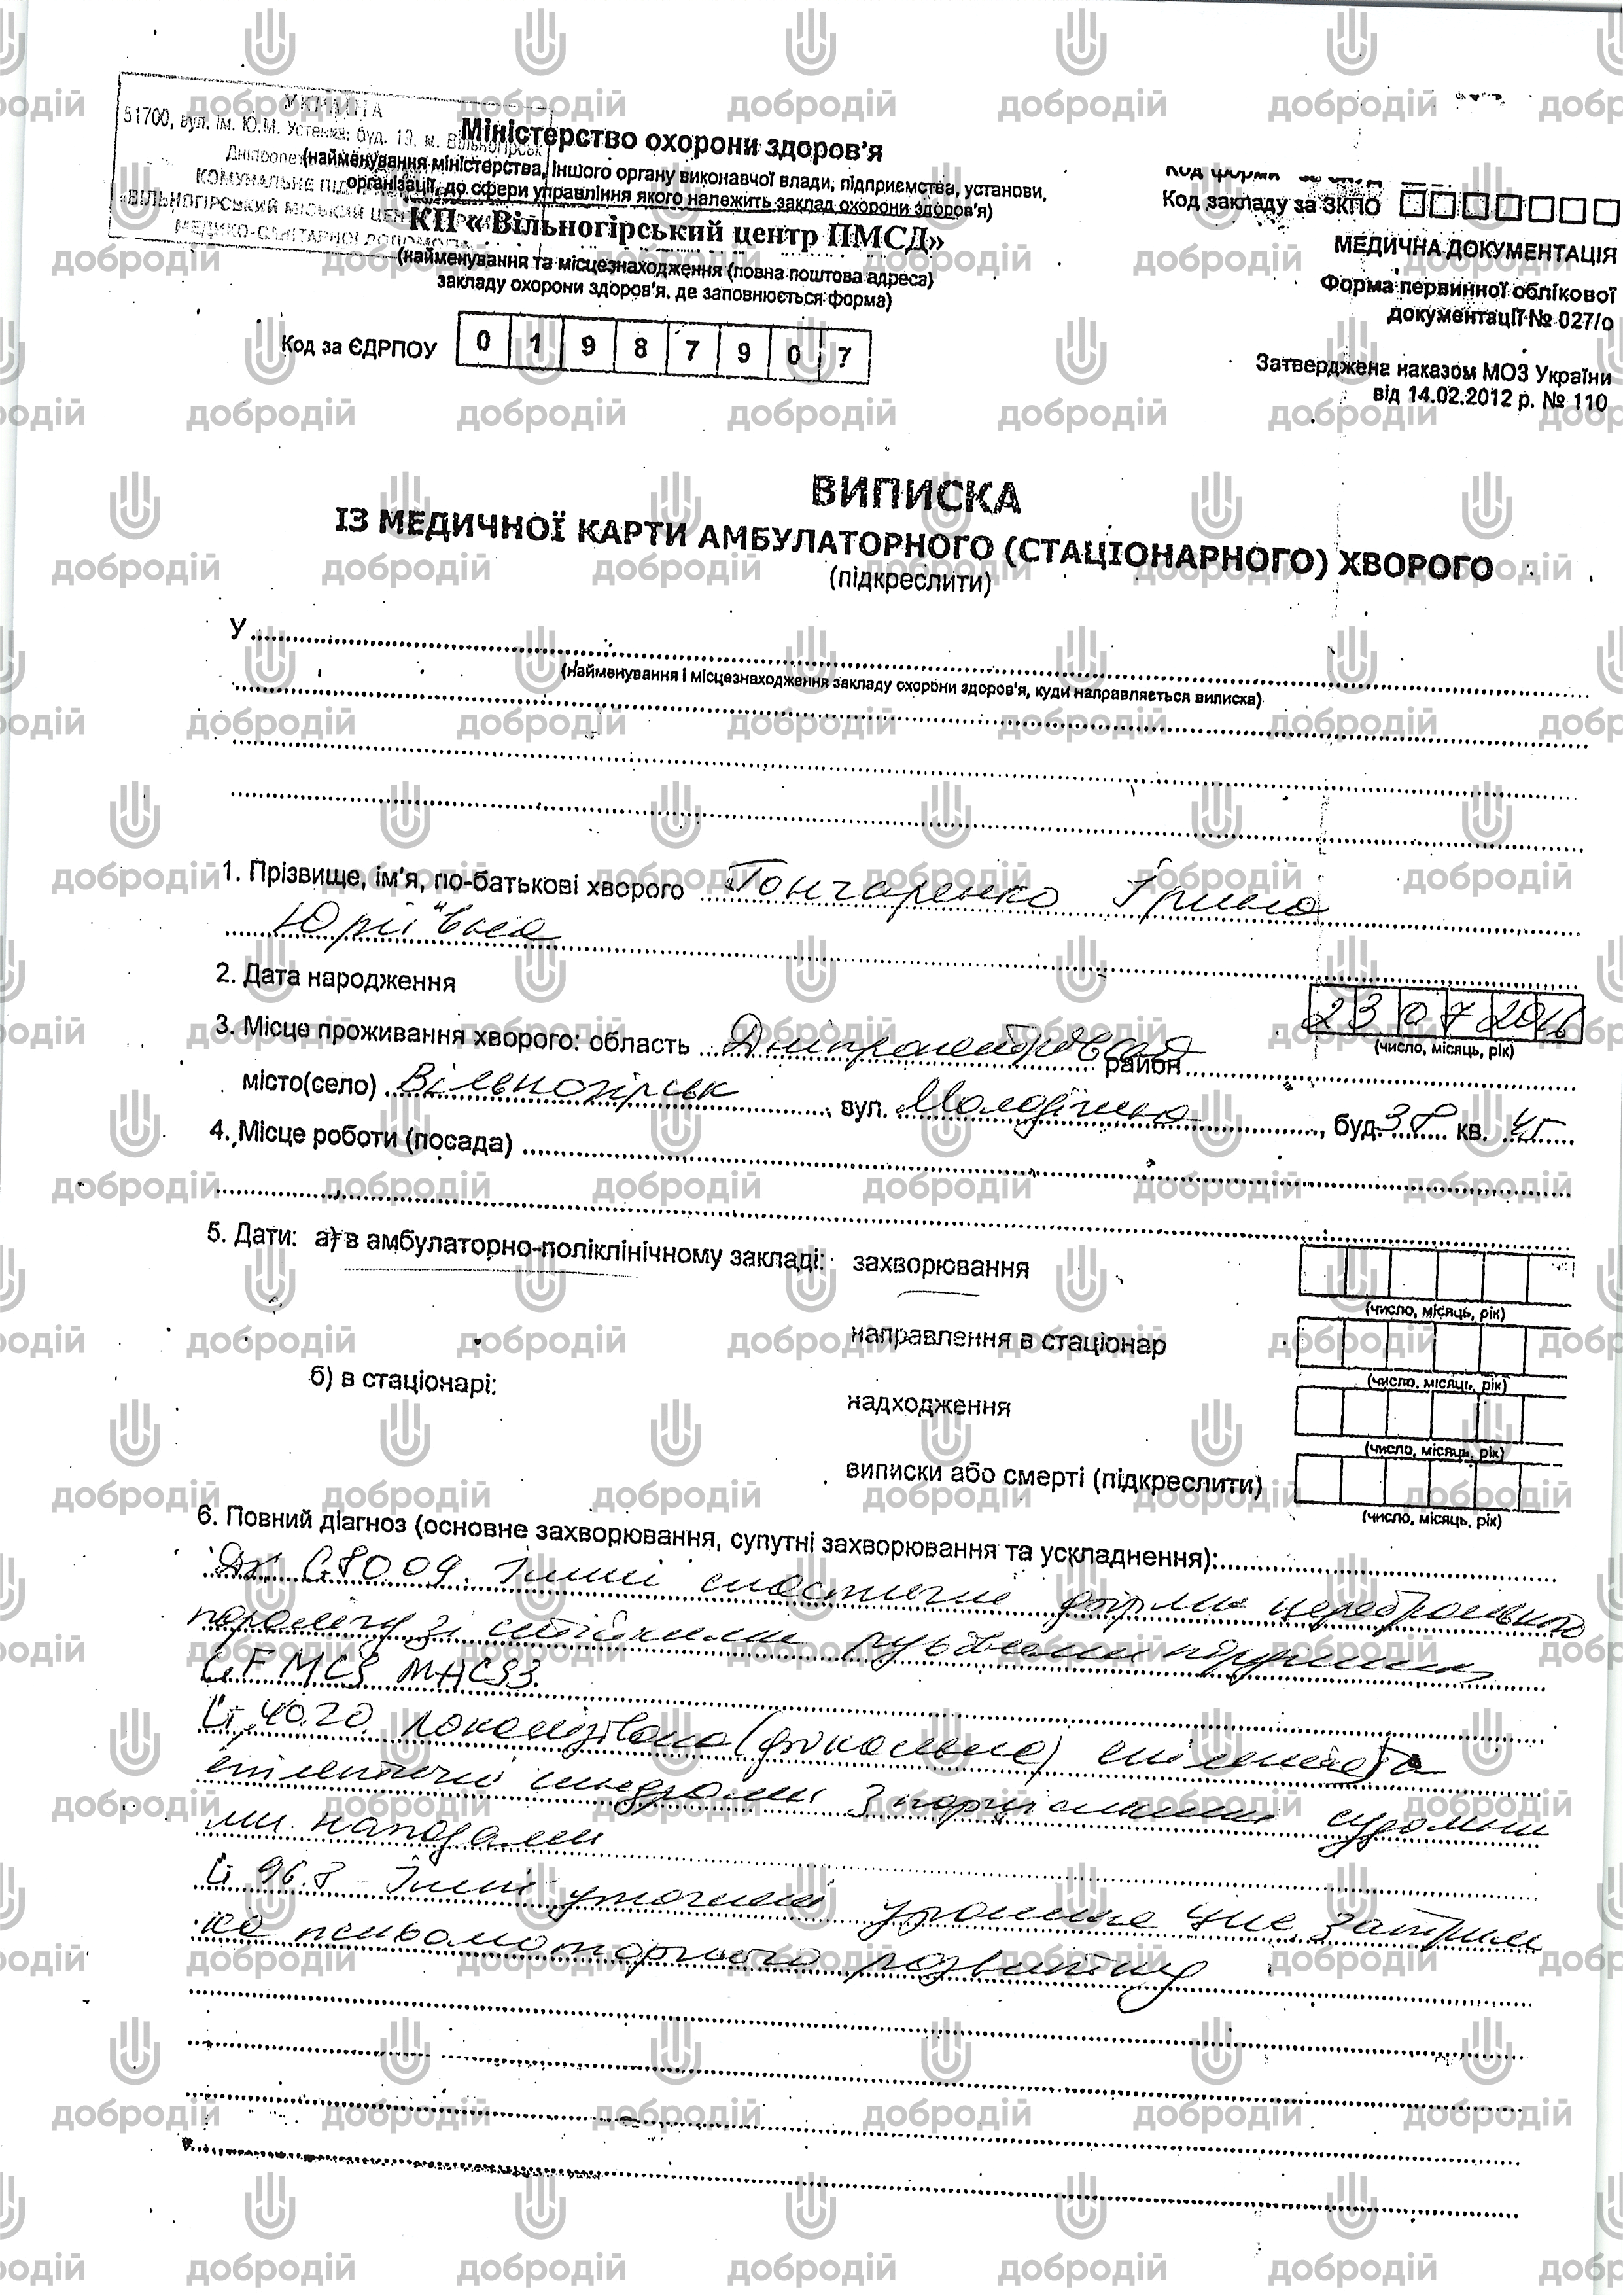 УКРАЇНА
51700, вул. ім. Ю.М. Устенка, буд. 13, м. Вільногірськ
КОМУНАЛЬНЕ
«ВІЛЬНОГІРСЬКИЙ МІСЬКИЙ
МЕДИКО-САНІТАРНОЇ ДОПОМОГИ
Міністерство охорони здоров'я
(найменування міністерства, іншого органу виконавчої влади, підприємства, установи,
організації, до сфери управління якого належить заклад охорони здоров'я)
КП « Вільногірський центр ПМСД»
(найменування та місцезнаходження (повна поштова адреса)
закладу охорони здоров'я, де заповнюється форма)
Код за ЄДРПОУ 0 1 9 8 7 9 0 7
Код форми
Код закладу за ЗКПО
МЕДИЧНА ДОКУМЕНТАЦІЯ
Форма первинної облікової
документації № 027/о
Затверджена наказом МОЗ України
від 14.02.2012 р. № 110
ВИПИСКА
ІЗ МЕДИЧНОЇ КАРТИ АМБУЛАТОРНОГО (СТАЦІОНАРНОГО) ХВОРОГО
(підкреслити)
У
(найменування і місцезнаходження закладу охорони здоров'я, куди направляється виписка)
1. Прізвище, ім'я, по-батькові хворого Гончаренко Ірина
Юріївна
2. Дата народження 23 07 2016
(число, місяць, рік)
3. Місце проживання хворого: область Дніпропетровська район
місто(село) Вільногірськ, вул. Молодіжна, буд. 38 кв. 45
4. Місце роботи (посада)
5. Дати: а) в амбулаторно-поліклінічному закладі: захворювання
(число, місяць, рік)
направлення в стаціонар
(число, місяць, рік)
б) в стаціонарі:
надходження
(число, місяць, рік)
виписки або смерті (підкреслити)
(число, місяць, рік)
6. Повний діагноз (основне захворювання, супутні захворювання та ускладнення):
Дз, G80.09. Інші спастичні форми церебрального
паралічу зі стійкими руховими порушеннями
GFMCS MACS3.
G 40.20 локалізована (фокальна) епілепсія та
епілептичні синдроми з парціальними судомни
ми нападами
G 96.8 Інші уточнені ураження ЦНС, затрим
ка психомоторного розвитку
добродій